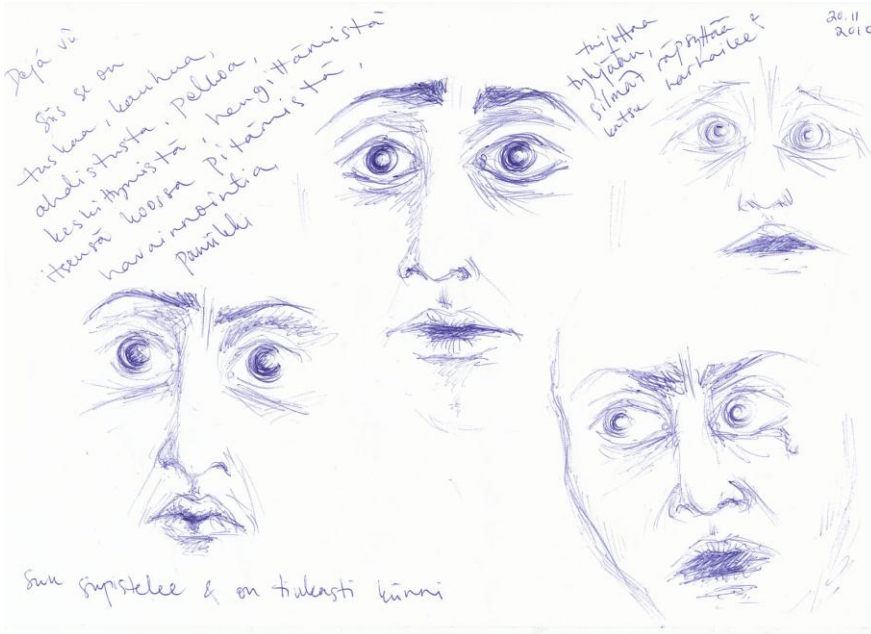 Dejá vù
siis se on
tuskaa, kauhua,
ahdistusta, pelkoa,
keskittymistä, hengittämistä
itsensä koossa pitämistä,
havainnointia,
paniikki
tuijottaa
tyhjään,
silmät räpsyttää &
katse harhailee
20.11
2010
Suu supistelee & on tiukasti kiinni